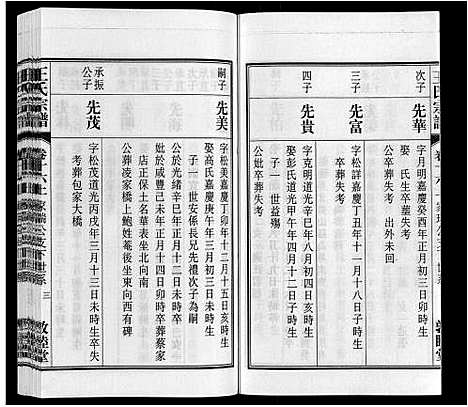 王氏宗譜
次子
先華
字月明嘉慶癸酉年正月初三日亥時生
娶 氏生卒葬失考 出外未回
三子
先富
字松詳嘉慶丁丑年十一月十八日子時生
卒葬失考
四子
先貴
字克明道光辛巳年八月初三日亥時生
娶彭氏道光甲午年四月初三日子時生
子一 世益殤
公妣卒葬失考
敦睦堂
嗣子
先美
字松美嘉慶丁卯年十二月十五日亥時生
娶高氏嘉慶庚午年三月初三日未時生
子一 世安係長兄先禮次子為嗣
公於光緒辛巳年正月十二日未時卒
妣於咸豐己未年正月十四日卯時卒葬蔡家
店正保土名華表坐北向南
公葬凌家橋上鮑姓菴後坐東向西有碑
承振公子
先茂
字松茂道光丙戌年三月十三日未時生卒失
考葬包家大橋
王氏宗譜
三
敦睦堂